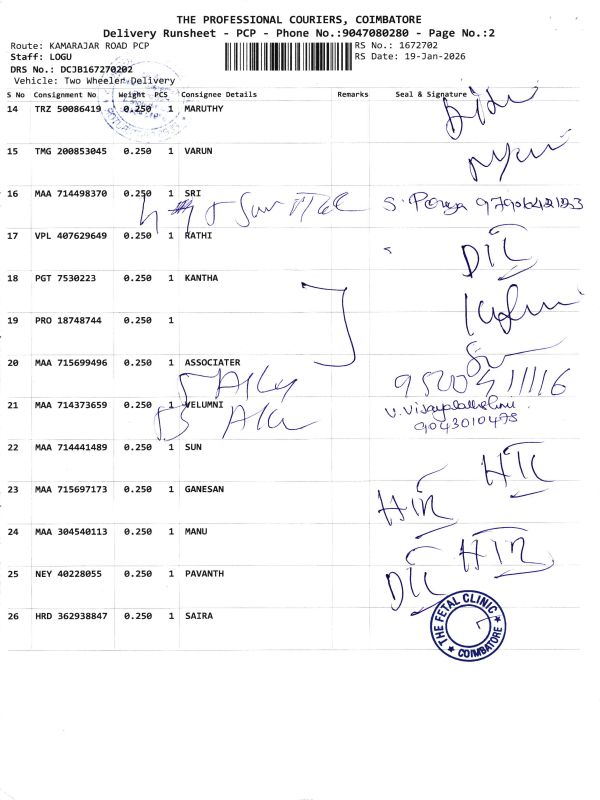 THE PROFESSIONAL COURIERS, COIMBATORE
Delivery Runsheet - PCP - Phone No.:9047080280 - Page No.:2
Route: KAMARAJAR ROAD PCP
RS No.: 1672702
Staff: LOGU
RS Date: 19-Jan-2026
DRS No.: DCJB167270202
Vehicle: Two Wheeler Delivery
S No Consignment No Weight PCS Consignee Details Remarks Seal & Signature
14 TRZ 50086419 0.250 1 MARUTHY
15 TMG 200853045 0.250 1 VARUN
16 MAA 714498370 0.250 1 SRI
17 VPL 407629649 0.250 1 RATHI
DIL
18 PGT 7530223 0.250 1 KANTHA
19 PRO 18748744 0.250 1
20 MAA 715699496 0.250 1 ASSOCIATER
21 MAA 714373659 0.250 1 VELUMNI
9043010475
22 MAA 714441489 0.250 1 SUN
23 MAA 715697173 0.250 1 GANESAN
24 MAA 304540113 0.250 1 MANU
25 NEY 40228055 0.250 1 PAVANTH
26 HRD 362938847 0.250 1 SAIRA
THE FETAL CLINIC
COIMBATORE